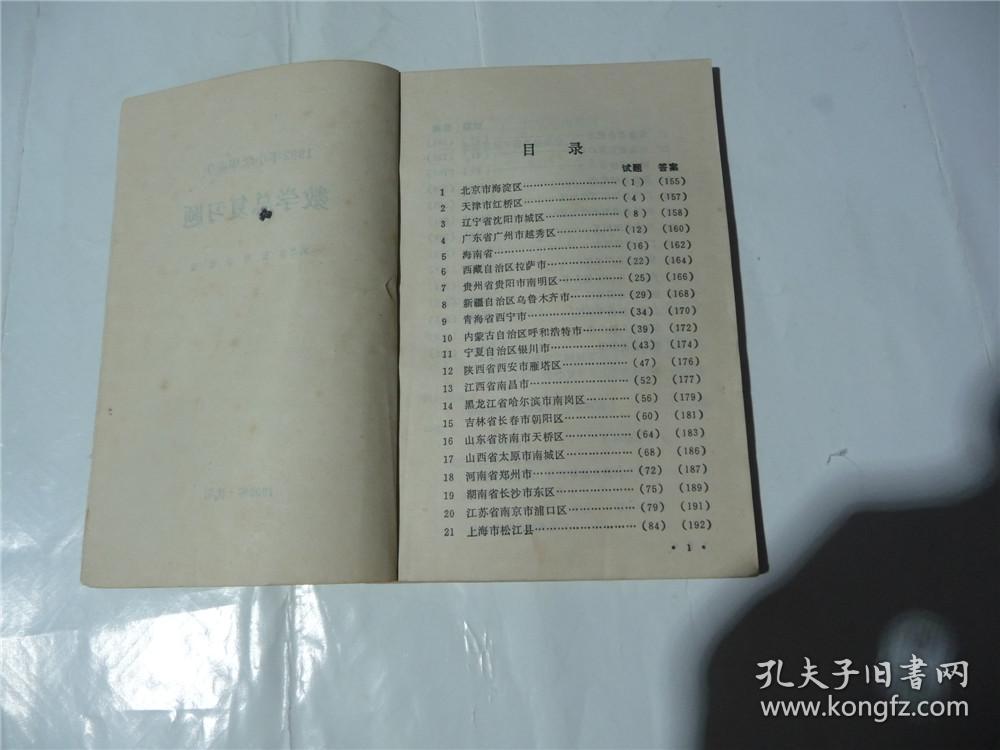 数学总复习题
目 录
试题 答案
1 北京市海淀区……………………(1) (155)
2 天津市红桥区……………………(4) (157)
3 辽宁省沈阳市城区………………(8) (158)
4 广东省广州市越秀区……………(12) (160)
5 海南省……………………………(16) (162)
6 西藏自治区拉萨市………………(22) (164)
7 贵州省贵阳市南明区……………(25) (166)
8 新疆自治区乌鲁木齐市…………(29) (168)
9 青海省西宁市……………………(34) (170)
10 内蒙古自治区呼和浩特市………(39) (172)
11 宁夏自治区银川市………………(43) (174)
12 陕西省西安市雁塔区……………(47) (176)
13 江西省南昌市……………………(52) (177)
14 黑龙江省哈尔滨市南岗区………(56) (179)
15 吉林省长春市朝阳区……………(60) (181)
16 山东省济南市天桥区……………(64) (183)
17 山西省太原市南城区……………(68) (186)
18 河南省郑州市……………………(72) (187)
19 湖南省长沙市东区………………(75) (189)
20 江苏省南京市浦口区……………(79) (191)
21 上海市松江县……………………(84) (192)
* 1 *
孔夫子旧書网
www.kongfz.com